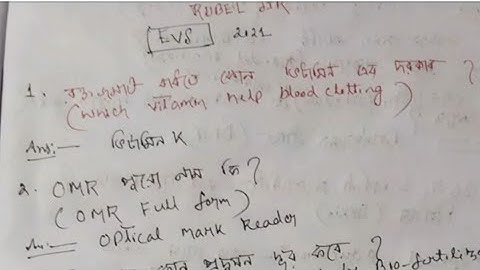 RUBEL SIR
EVS 2021
1. রক্ত জমাট বাঁধতে কোন ভিটামিন এর দরকার ?
(which vitamin help blood clotting)
Ans:— ভিটামিন K
2. OMR পুরো নাম কি ?
(OMR Full form)
Ans:— Optical mark Reader
কোন প্রদূষন দূর করে ?
Bio-fertilizer